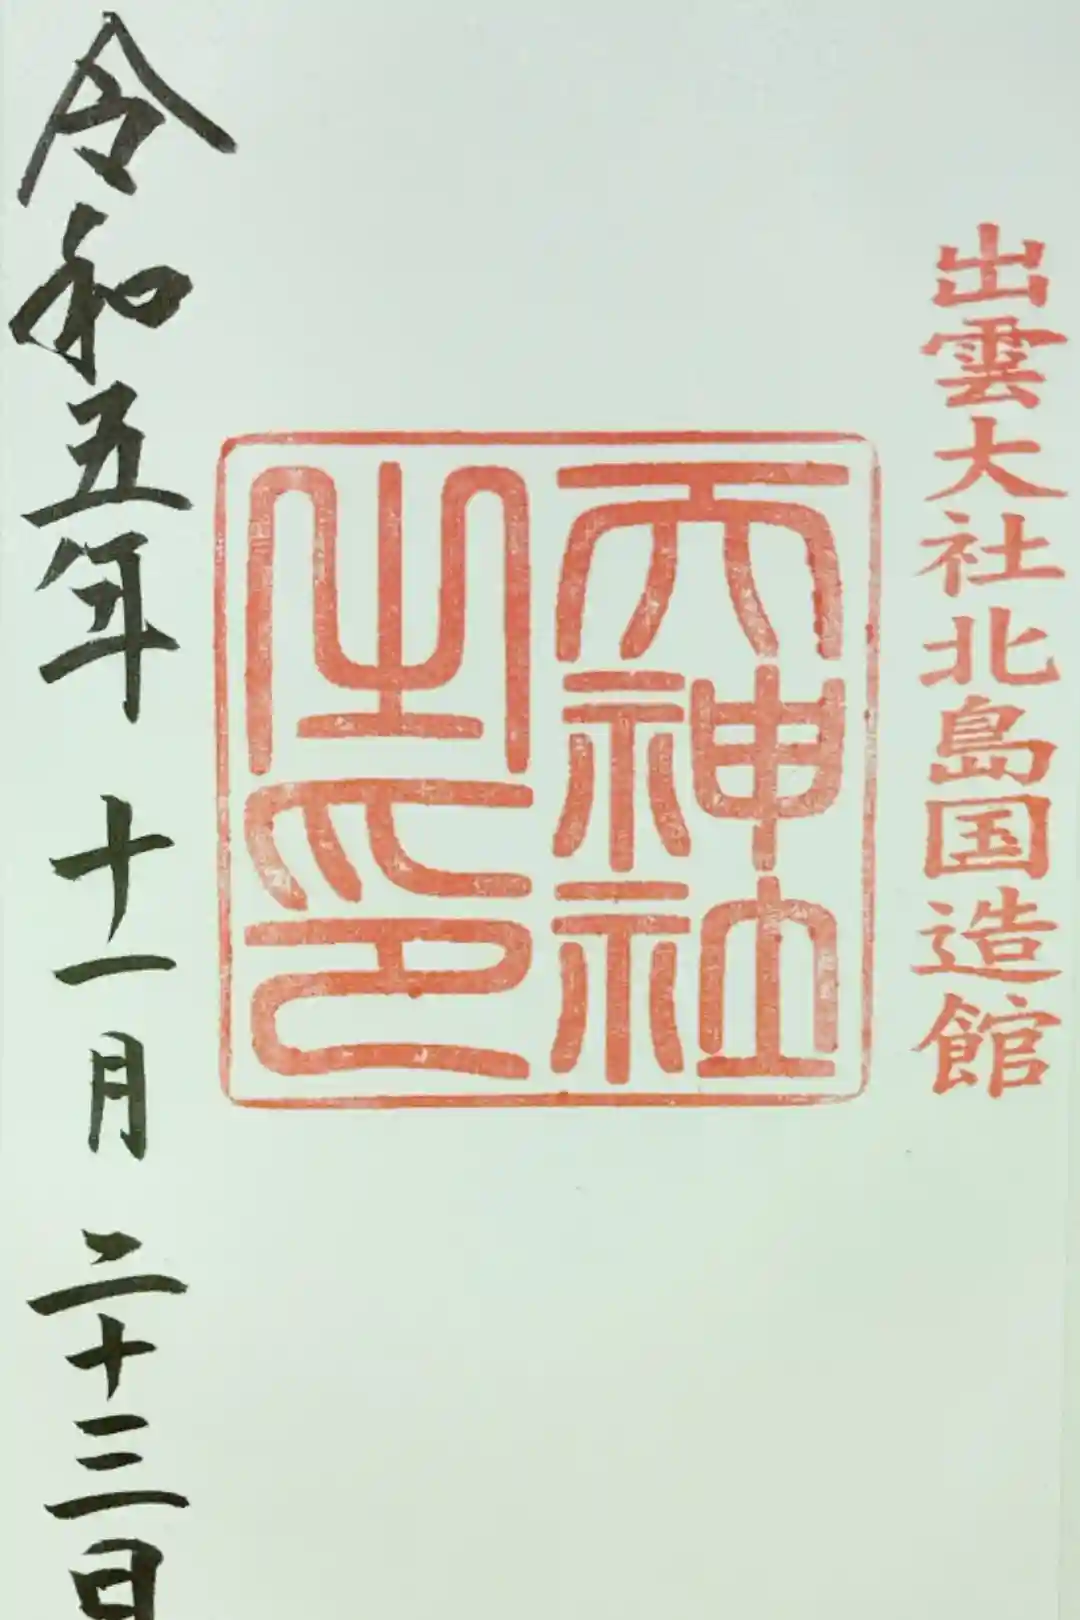 出雲大社北島国造館
天神社
之印
令和五年十一月二十三日